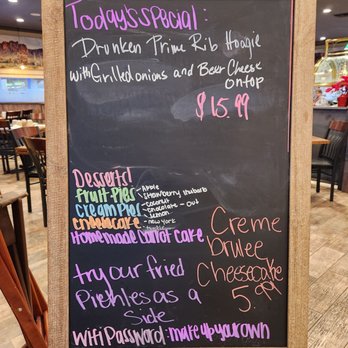 Today's special:
Drunken Prime Rib Hoagie
with Grilled onions and Beer Cheese
on top
$15.99
Desserts!
fruit Pies - Apple
- strawberry rhubarb
Cream Pies - coconut
- chocolate - out
- lemon
cheesecake - new york
Homemade Carrot cake
Creme
brulee
Cheesecake
5.99
try our fried
Pickles as a
side
Wifi Password - make up your own